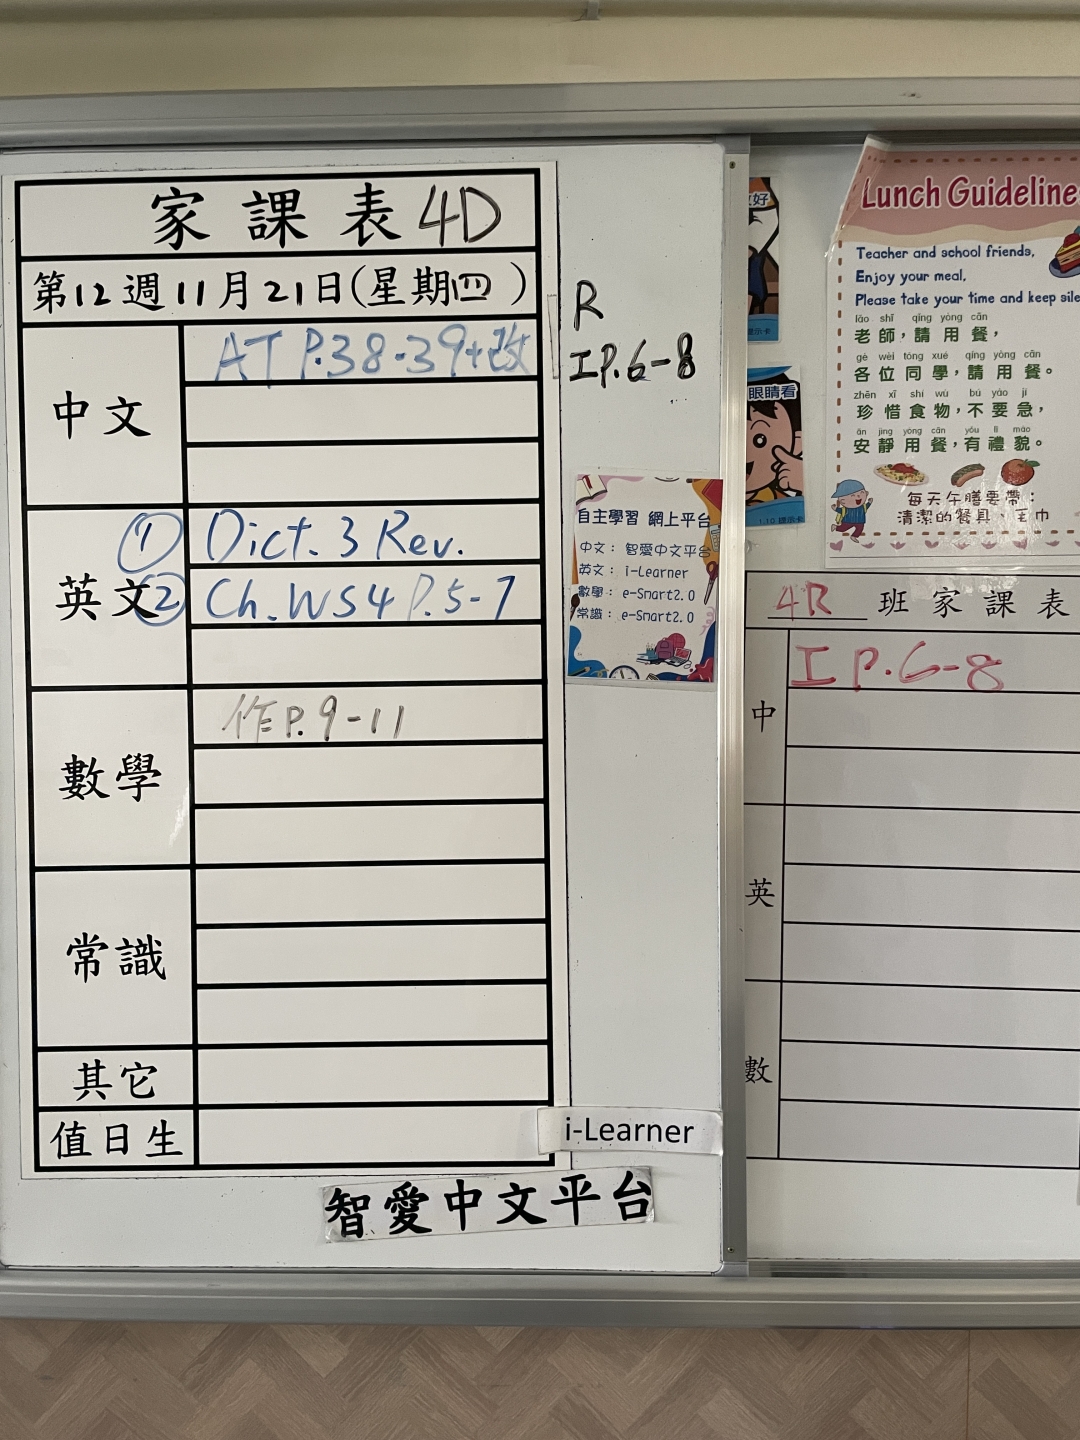 家課表 4D
第12週11月21日(星期四)
中文
AT P.38-39+改
英文
① Dict. 3 Rev.
② Ch. WS4 P.5-7
數學
作P.9-11
常識
其它
值日生
i-Learner
智愛中文平台
R
IP.6-8
自主學習 網上平台
中文： 智愛中文平台
英文： i-Learner
數學： e-Smart2.0
常識： e-Smart2.0
好
提示卡
眼睛看
1.10 提示卡
Lunch Guideline
Teacher and school friends,
Enjoy your meal,
Please take your time and keep sile
lǎo shī qǐng yòng cān
老師，請用餐，
gè wèi tóng xué qǐng yòng cān
各位同學，請用餐。
zhēn xī shí wù bú yào jí
珍惜食物，不要急，
ān jìng yòng cān yǒu lǐ mào
安靜用餐，有禮貌。
每天午膳要帶：
清潔的餐具、毛巾
4R 班家課表
中
I P.6-8
英
數